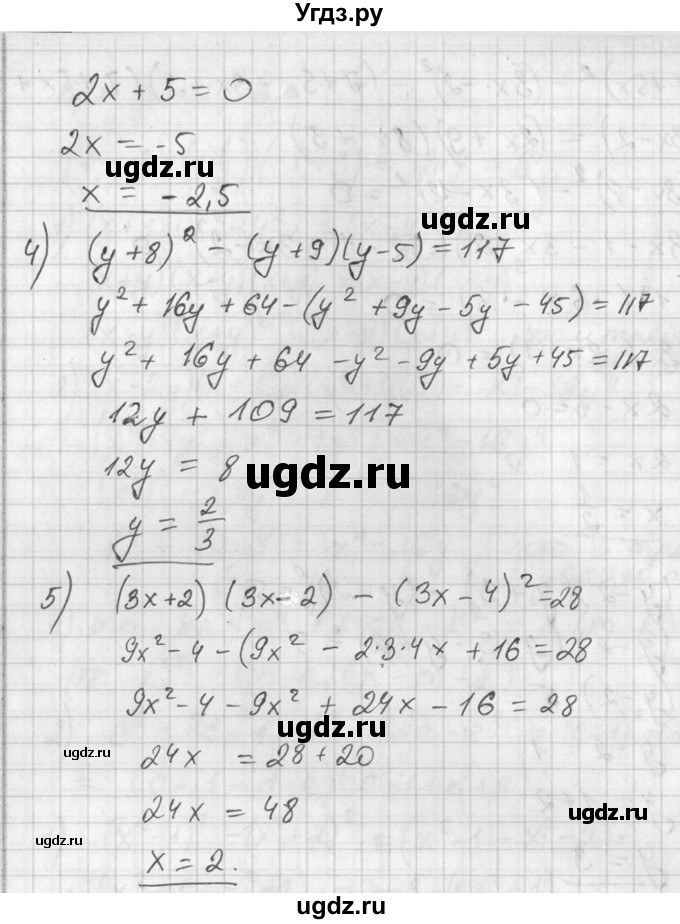 Угдз.ру
2x + 5 = 0
2x = -5
ugdz.ru
x = -2,5
4) (y+8)² - (y+9)(y-5) = 117
y² + 16y + 64 - (y² + 9y - 5y - 45) = 117
y² + 16y + 64 - y² - 9y + 5y + 45 = 117
12y + 109 = 117
12y = 8
ugdz.ru
y = 2/3
5) (3x+2)(3x-2) - (3x-4)² = 28
9x² - 4 - (9x² - 2·3·4x + 16 = 28
9x² - 4 - 9x² + 24x - 16 = 28
ugdz.ru
ugdz.ru
24x = 28 + 20
24x = 48
ugdz.ru
ugdz.ru
x = 2.
ugdz.ru